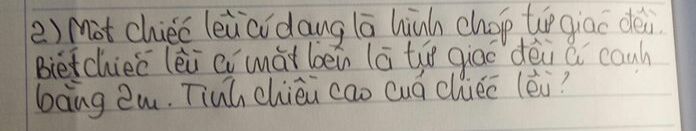 2) Một chiếc lều có dạng là hình chóp tứ giác đều.
Biết chiếc lều có mặt bên là tứ giác đều có cạnh
bằng 2m. Tính chiều cao của chiếc lều?